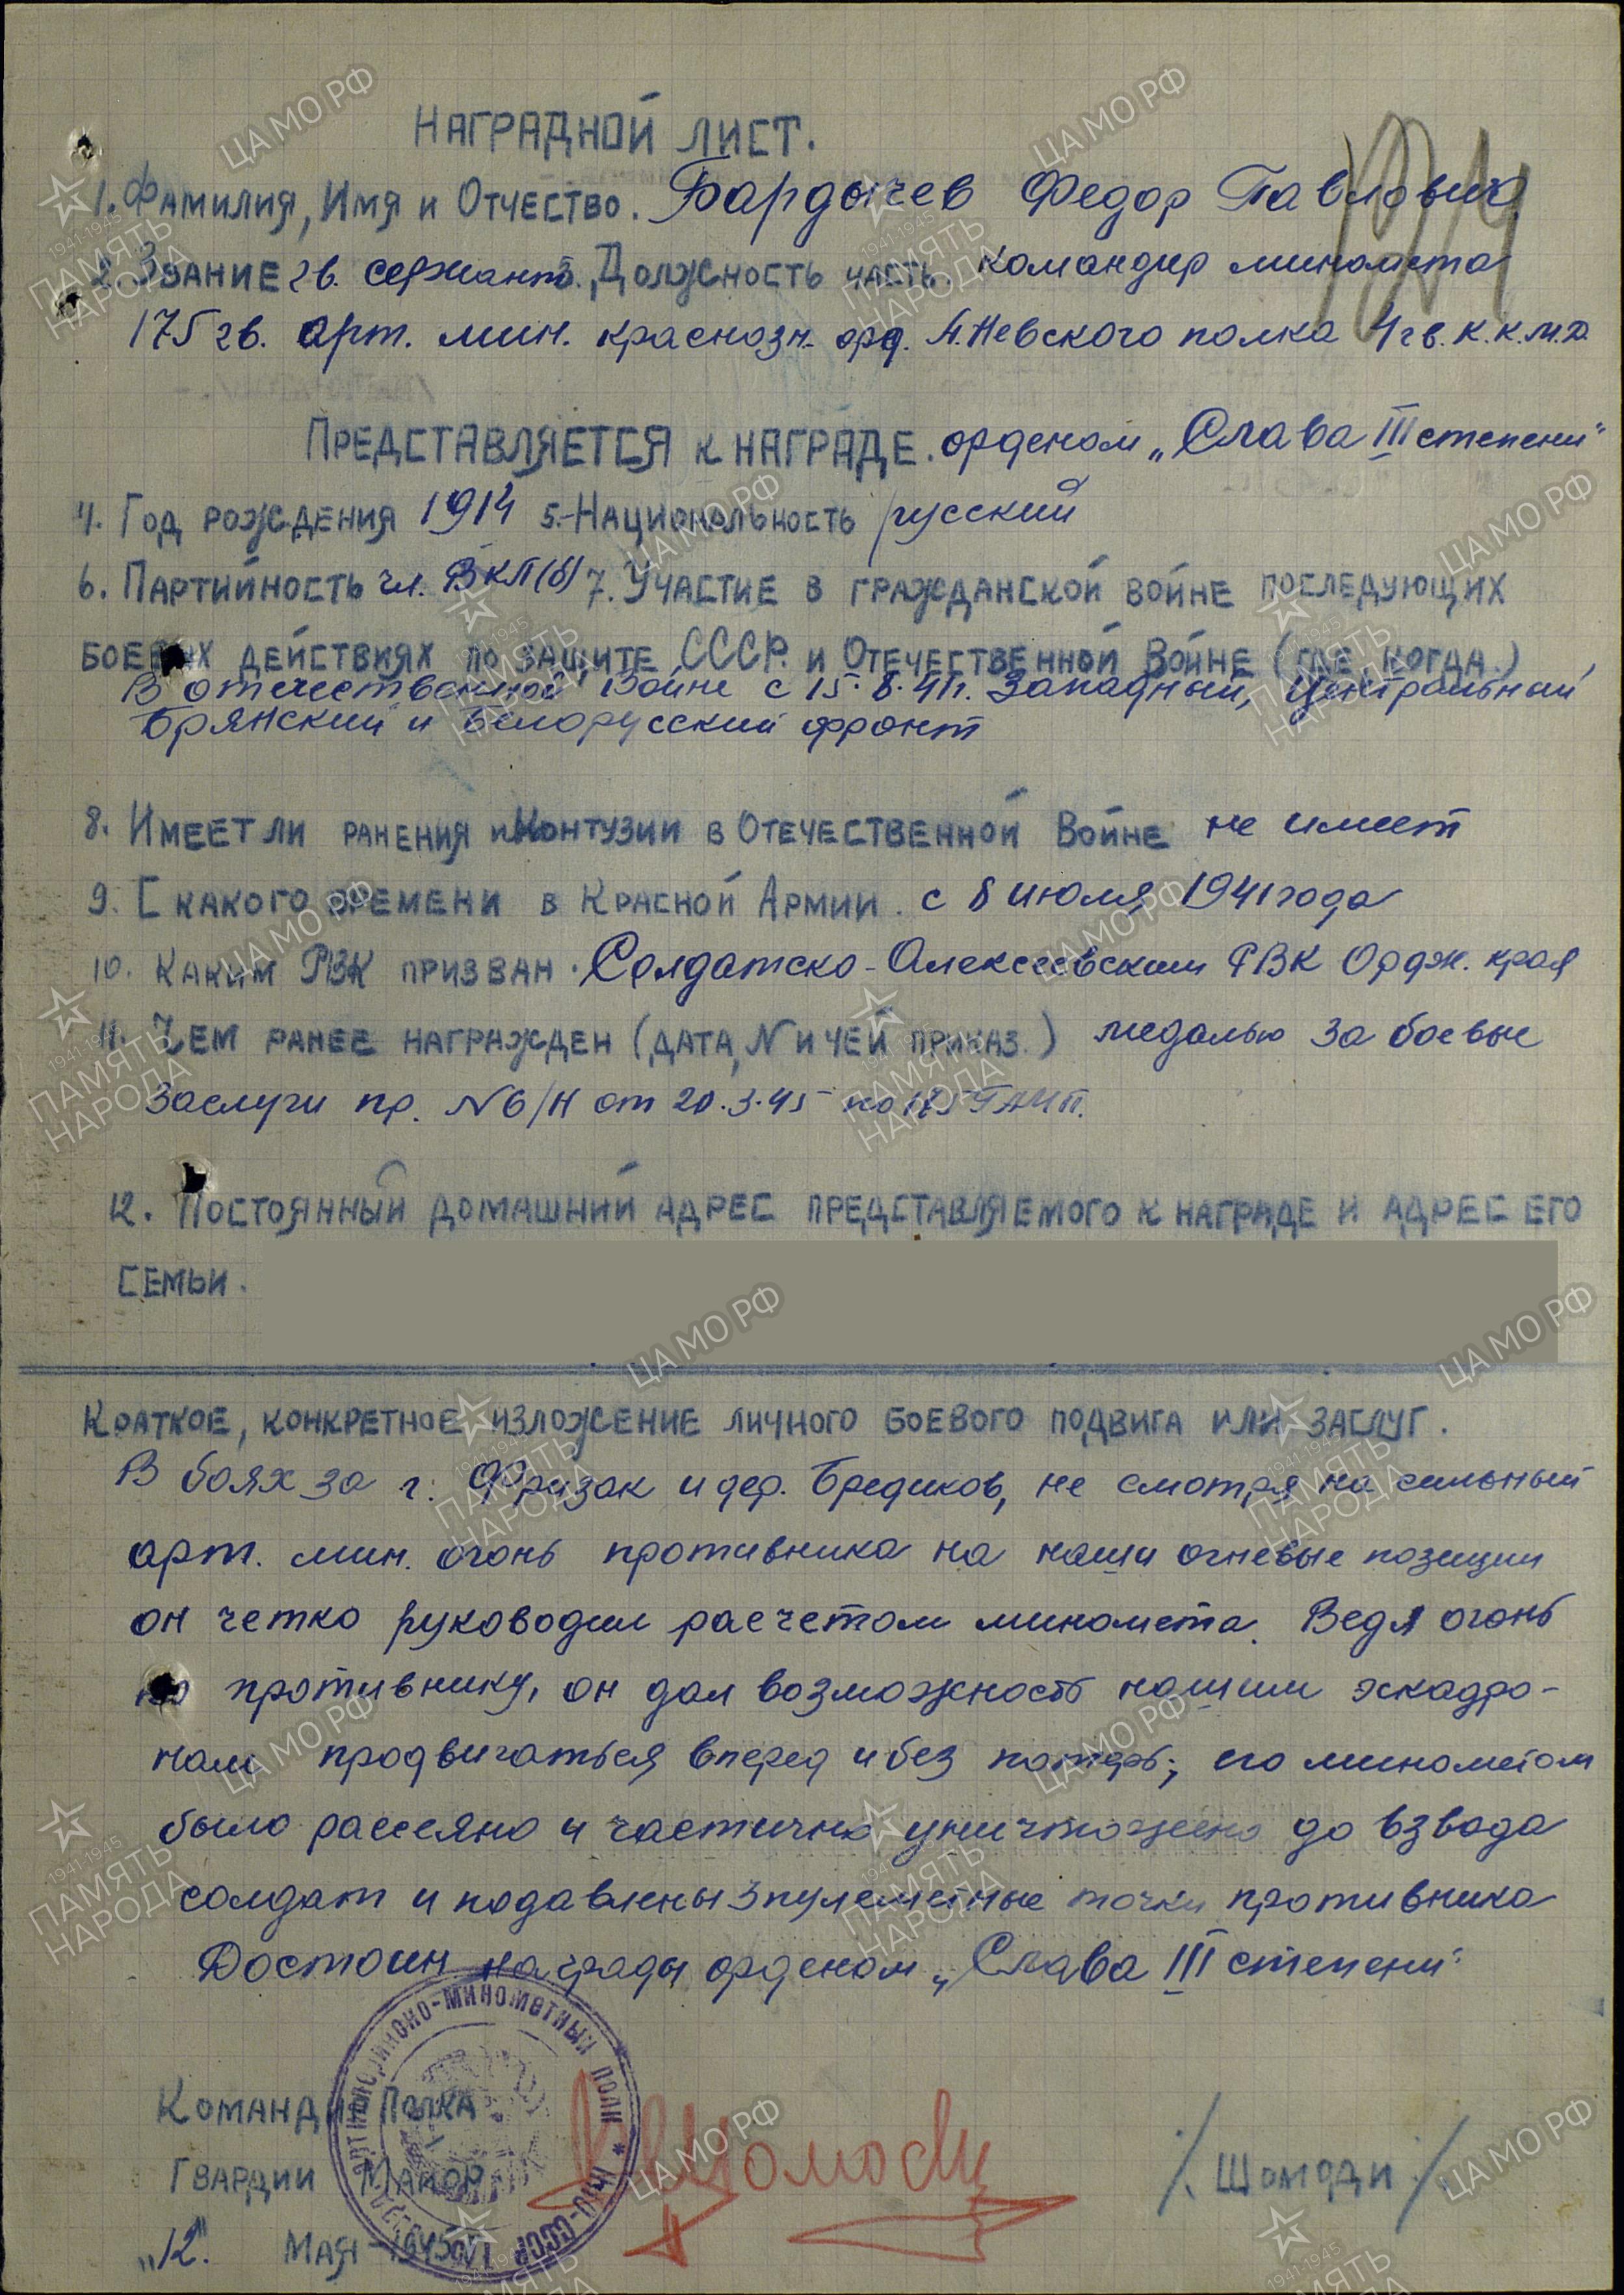 НАГРАДНОЙ ЛИСТ.
1. Фамилия, Имя и Отчество. Бардычев Федор Павлович
2. Звание гв. сержант 3. Должность часть. командир миномета
175 гв. арт. мин. краснозн. орд. А.Невского полка 4 гв. К.К.М.Д.
Представляется к награде. орденом „Слава III степени"
4. Год рождения 1914 5.- Национальность русский
6. Партийность чл. ВКП(б) 7. Участие в гражданской войне последующих
боевых действиях по защите СССР. и Отечественной Войне (где когда.)
В отечественной войне с 15.8.41г. Западный, Центральный,
Брянский и Белорусский фронт
8. Имеет ли ранения и контузии в Отечественной Войне не имеет
9. С какого времени в Красной Армии. с 8 июля 1941 года
10. Каким РВК призван. Солдатско-Александровским РВК Ордж. края
11. Чем ранее награжден (дата, N и чей приказ.) медалью за боевые
заслуги пр. N 6/Н от 20.3.45 по 175 ГАМП.
12. Постоянный домашний адрес представляемого к награде и адрес его
семьи.
Краткое, конкретное изложение личного боевого подвига или заслуг.
В боях за г. Фризак и дер. Бредиков, не смотря на сильный
арт. мин. огонь противника на наши огневые позиции
он четко руководил расчетом миномета. Ведя огонь
по противнику, он дал возможность нашим эскадро-
нам продвигаться вперед и без потерь; его минометом
было рассеяно и частично уничтожено до взвода
солдат и подавлены 3 пулеметные точки противника
Достоин награды орденом „Слава III степени"
Командир Полка
Гвардии Майор /. Шомоди ./
„12". Мая - 1945 г.
АРТИЛЛЕРИЙСКО-МИНОМЕТНЫЙ ПОЛК * НКО-СССР
ЦАМО РФ
1941-1945
ПАМЯТЬ
НАРОДА